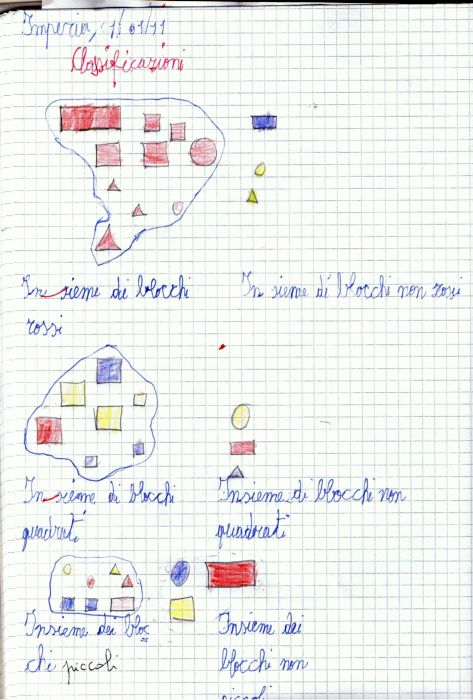 Imperia, 1/01/11
Classificazioni
In sieme di blocchi
rossi
In sieme di blocchi non rossi
In sieme di blocchi
quadrati
Insieme di blocchi non
quadrati
Insieme dei bloc
chi piccoli
Insieme dei
blocchi non
piccoli